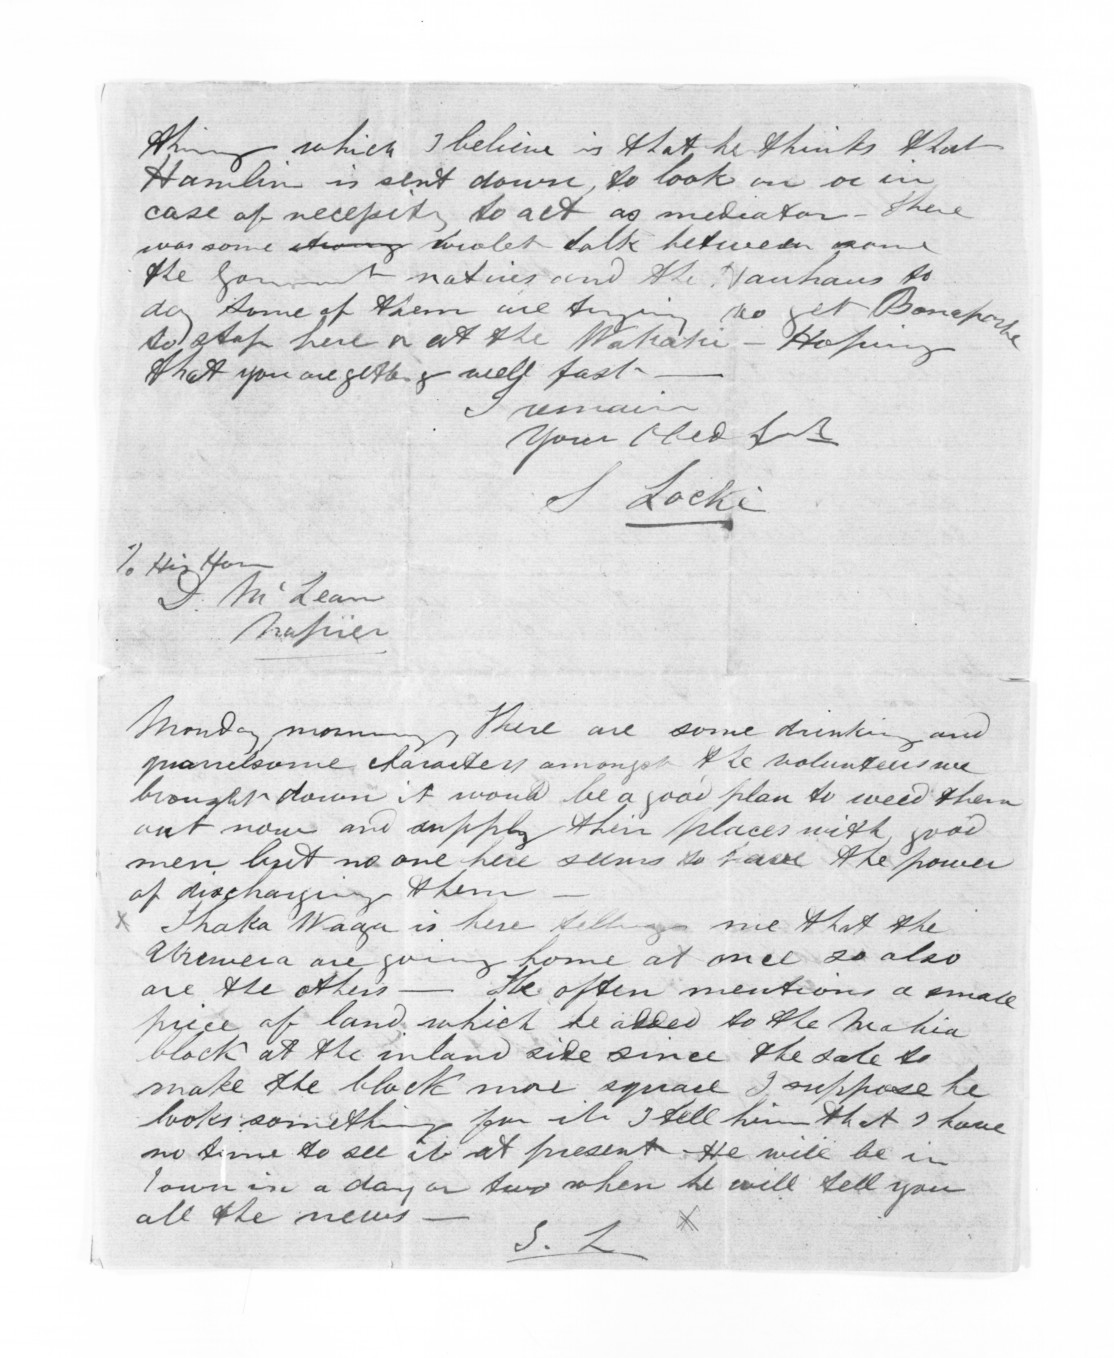 thing which I believe is that he thinks that
Hamlin is sent down, to look on or in
case of necessity to act as mediator - there
was some strong violet talk between some
the Government natives and the Hauhaus to
day some of them are trying to get Bonaparte
to stop here or at the Wakaki - Hoping
that you are getting well fast -
I remain
Your Obed Servt
S Locke
To His Honr
D. McLean
Napier
Monday morning, there are some drinking and
quarrelsome characters amongst the volunteers we
brought down it would be a good plan to weed them
out now and supply their places with good
men but no one here seems to have the power
of discharging them -
x Ihaka Waga is here telling me that the
Urewera are going home at once so also
are the others - He often mentions a small
piece of land which he added to the Mahia
block at the inland side since the sale to
make the block more square I suppose he
looks something for it I tell him that I have
no time to see it at present - He will be in
Town in a day or two when he will tell you
all the news - x
S. L